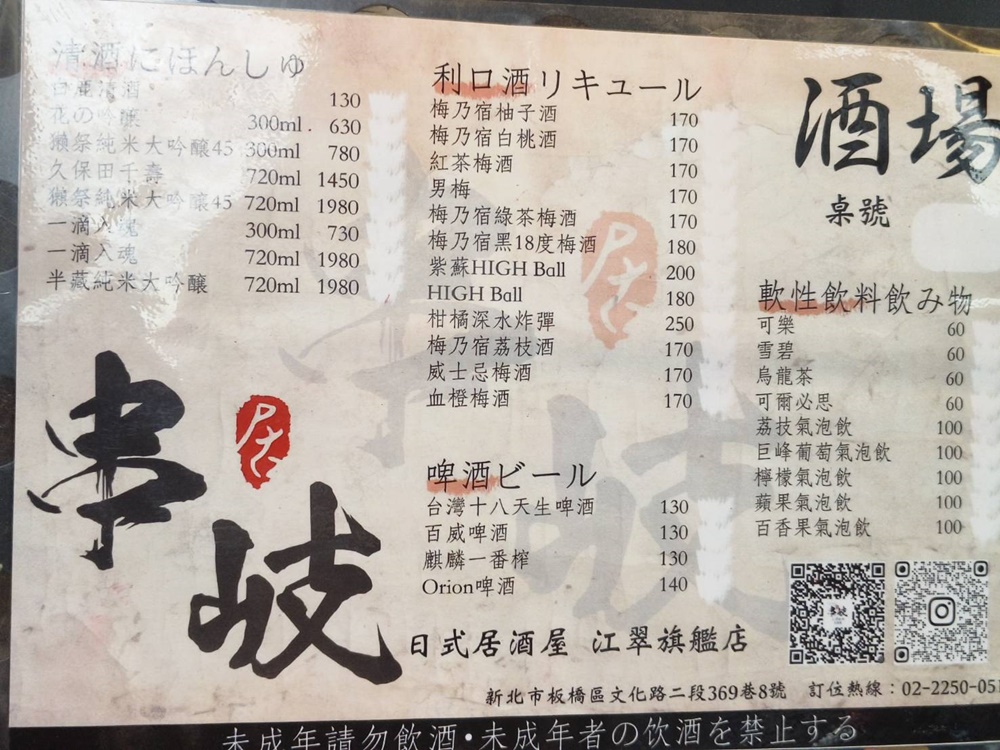 清酒にほんしゅ
白鹿清酒 130
花の一醸 300ml. 630
獺祭純米大吟醸45 300ml 780
久保田千壽 720ml 1450
獺祭純米大吟醸45 720ml 1980
一滴入魂 300ml 730
一滴入魂 720ml 1980
半藏純米大吟釀 720ml 1980
利口酒リキュール
梅乃宿柚子酒 170
梅乃宿白桃酒 170
紅茶梅酒 170
男梅 170
梅乃宿綠茶梅酒 170
梅乃宿黑18度梅酒 180
紫蘇HIGH Ball 200
HIGH Ball 180
柑橘深水炸彈 250
梅乃宿荔枝酒 170
威士忌梅酒 170
血橙梅酒 170
啤酒ビール
台灣十八天生啤酒 130
百威啤酒 130
麒麟一番榨 130
Orion啤酒 140
酒場
桌號
軟性飲料飲み物
可樂 60
雪碧 60
烏龍茶 60
可爾必思 60
荔枝氣泡飲 100
巨峰葡萄氣泡飲 100
檸檬氣泡飲 100
蘋果氣泡飲 100
百香果氣泡飲 100
串岐
居
日式居酒屋 江翠旗艦店
新北市板橋區文化路二段369巷8號 訂位熱線：02-2250-051
未成年請勿飲酒•未成年者の饮酒を禁止する